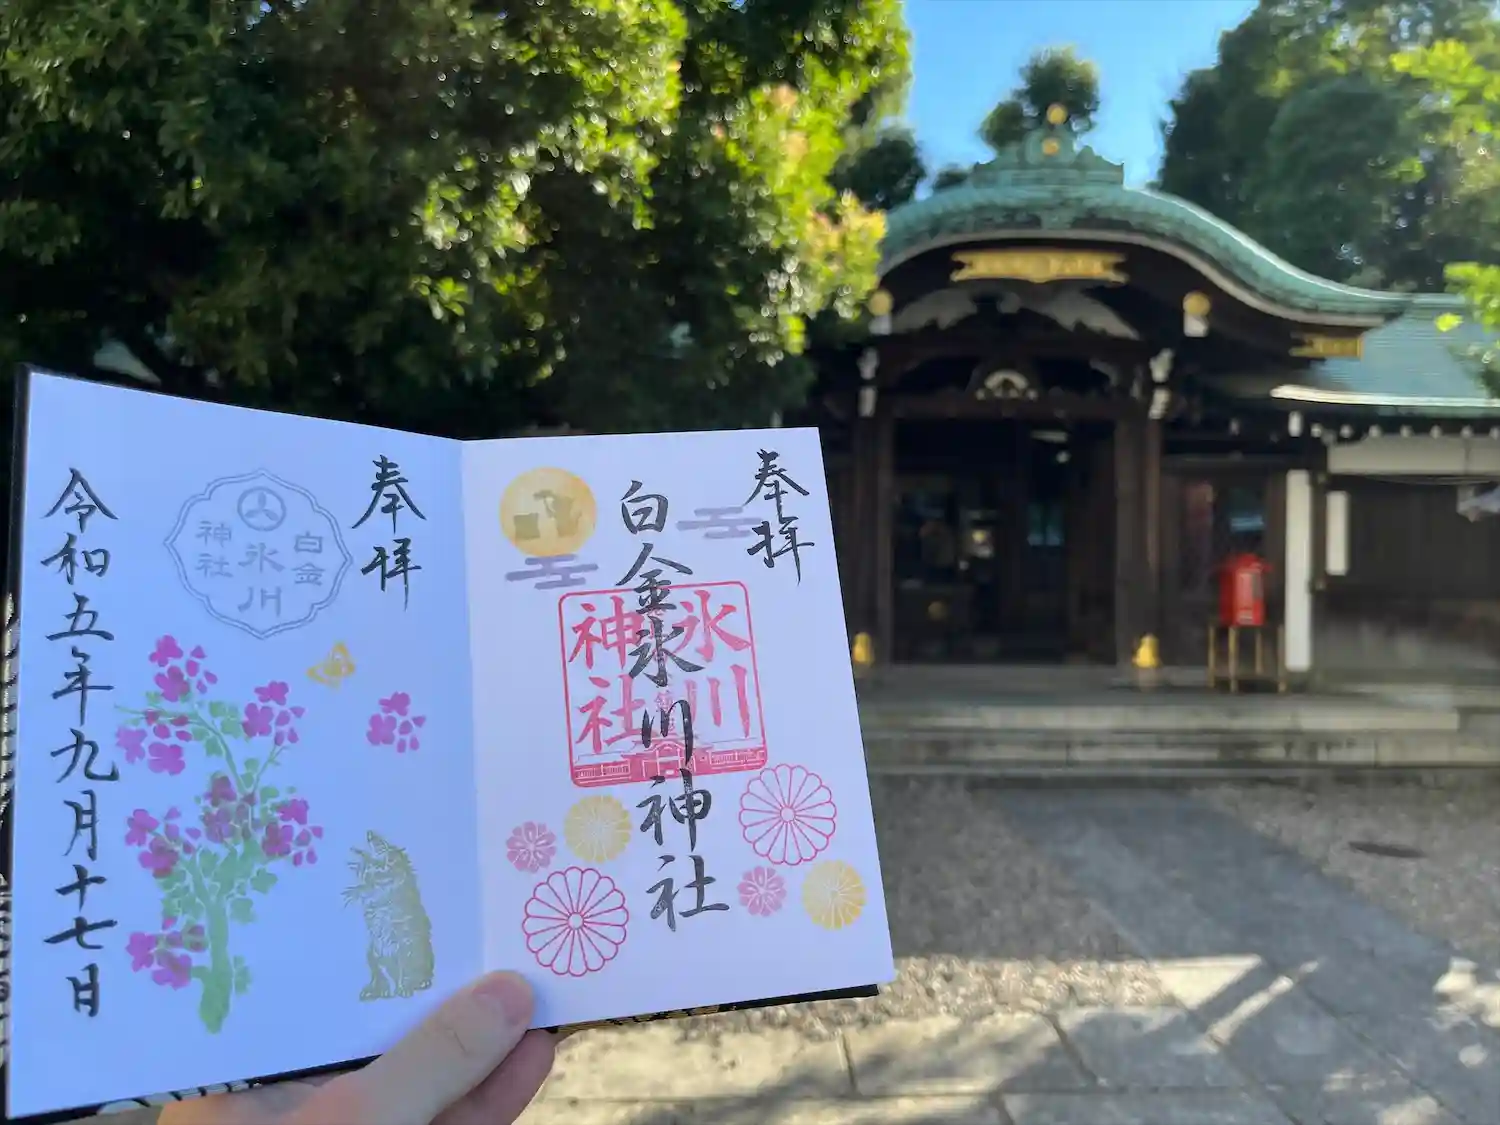 奉拝
白金氷川神社
氷川
神社
奉拝
白金
氷川
神社
令和五年九月十七日